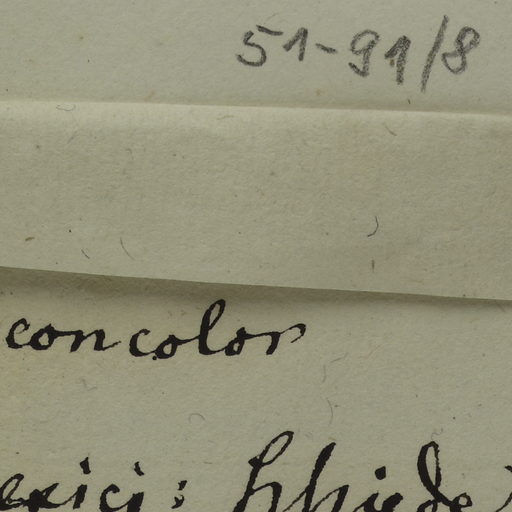 51-91/8
concolor
exici: Schiede